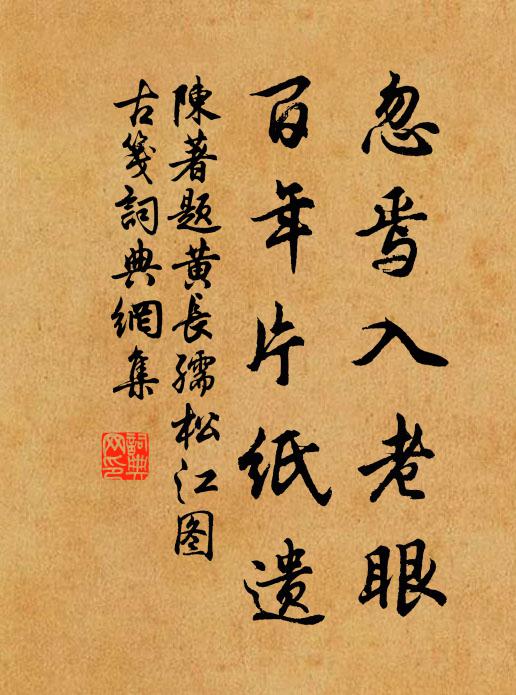 忽焉入老眼
百年片纸遗
陳著题黄長孺松江图
古箋詞典網集
詞典网印